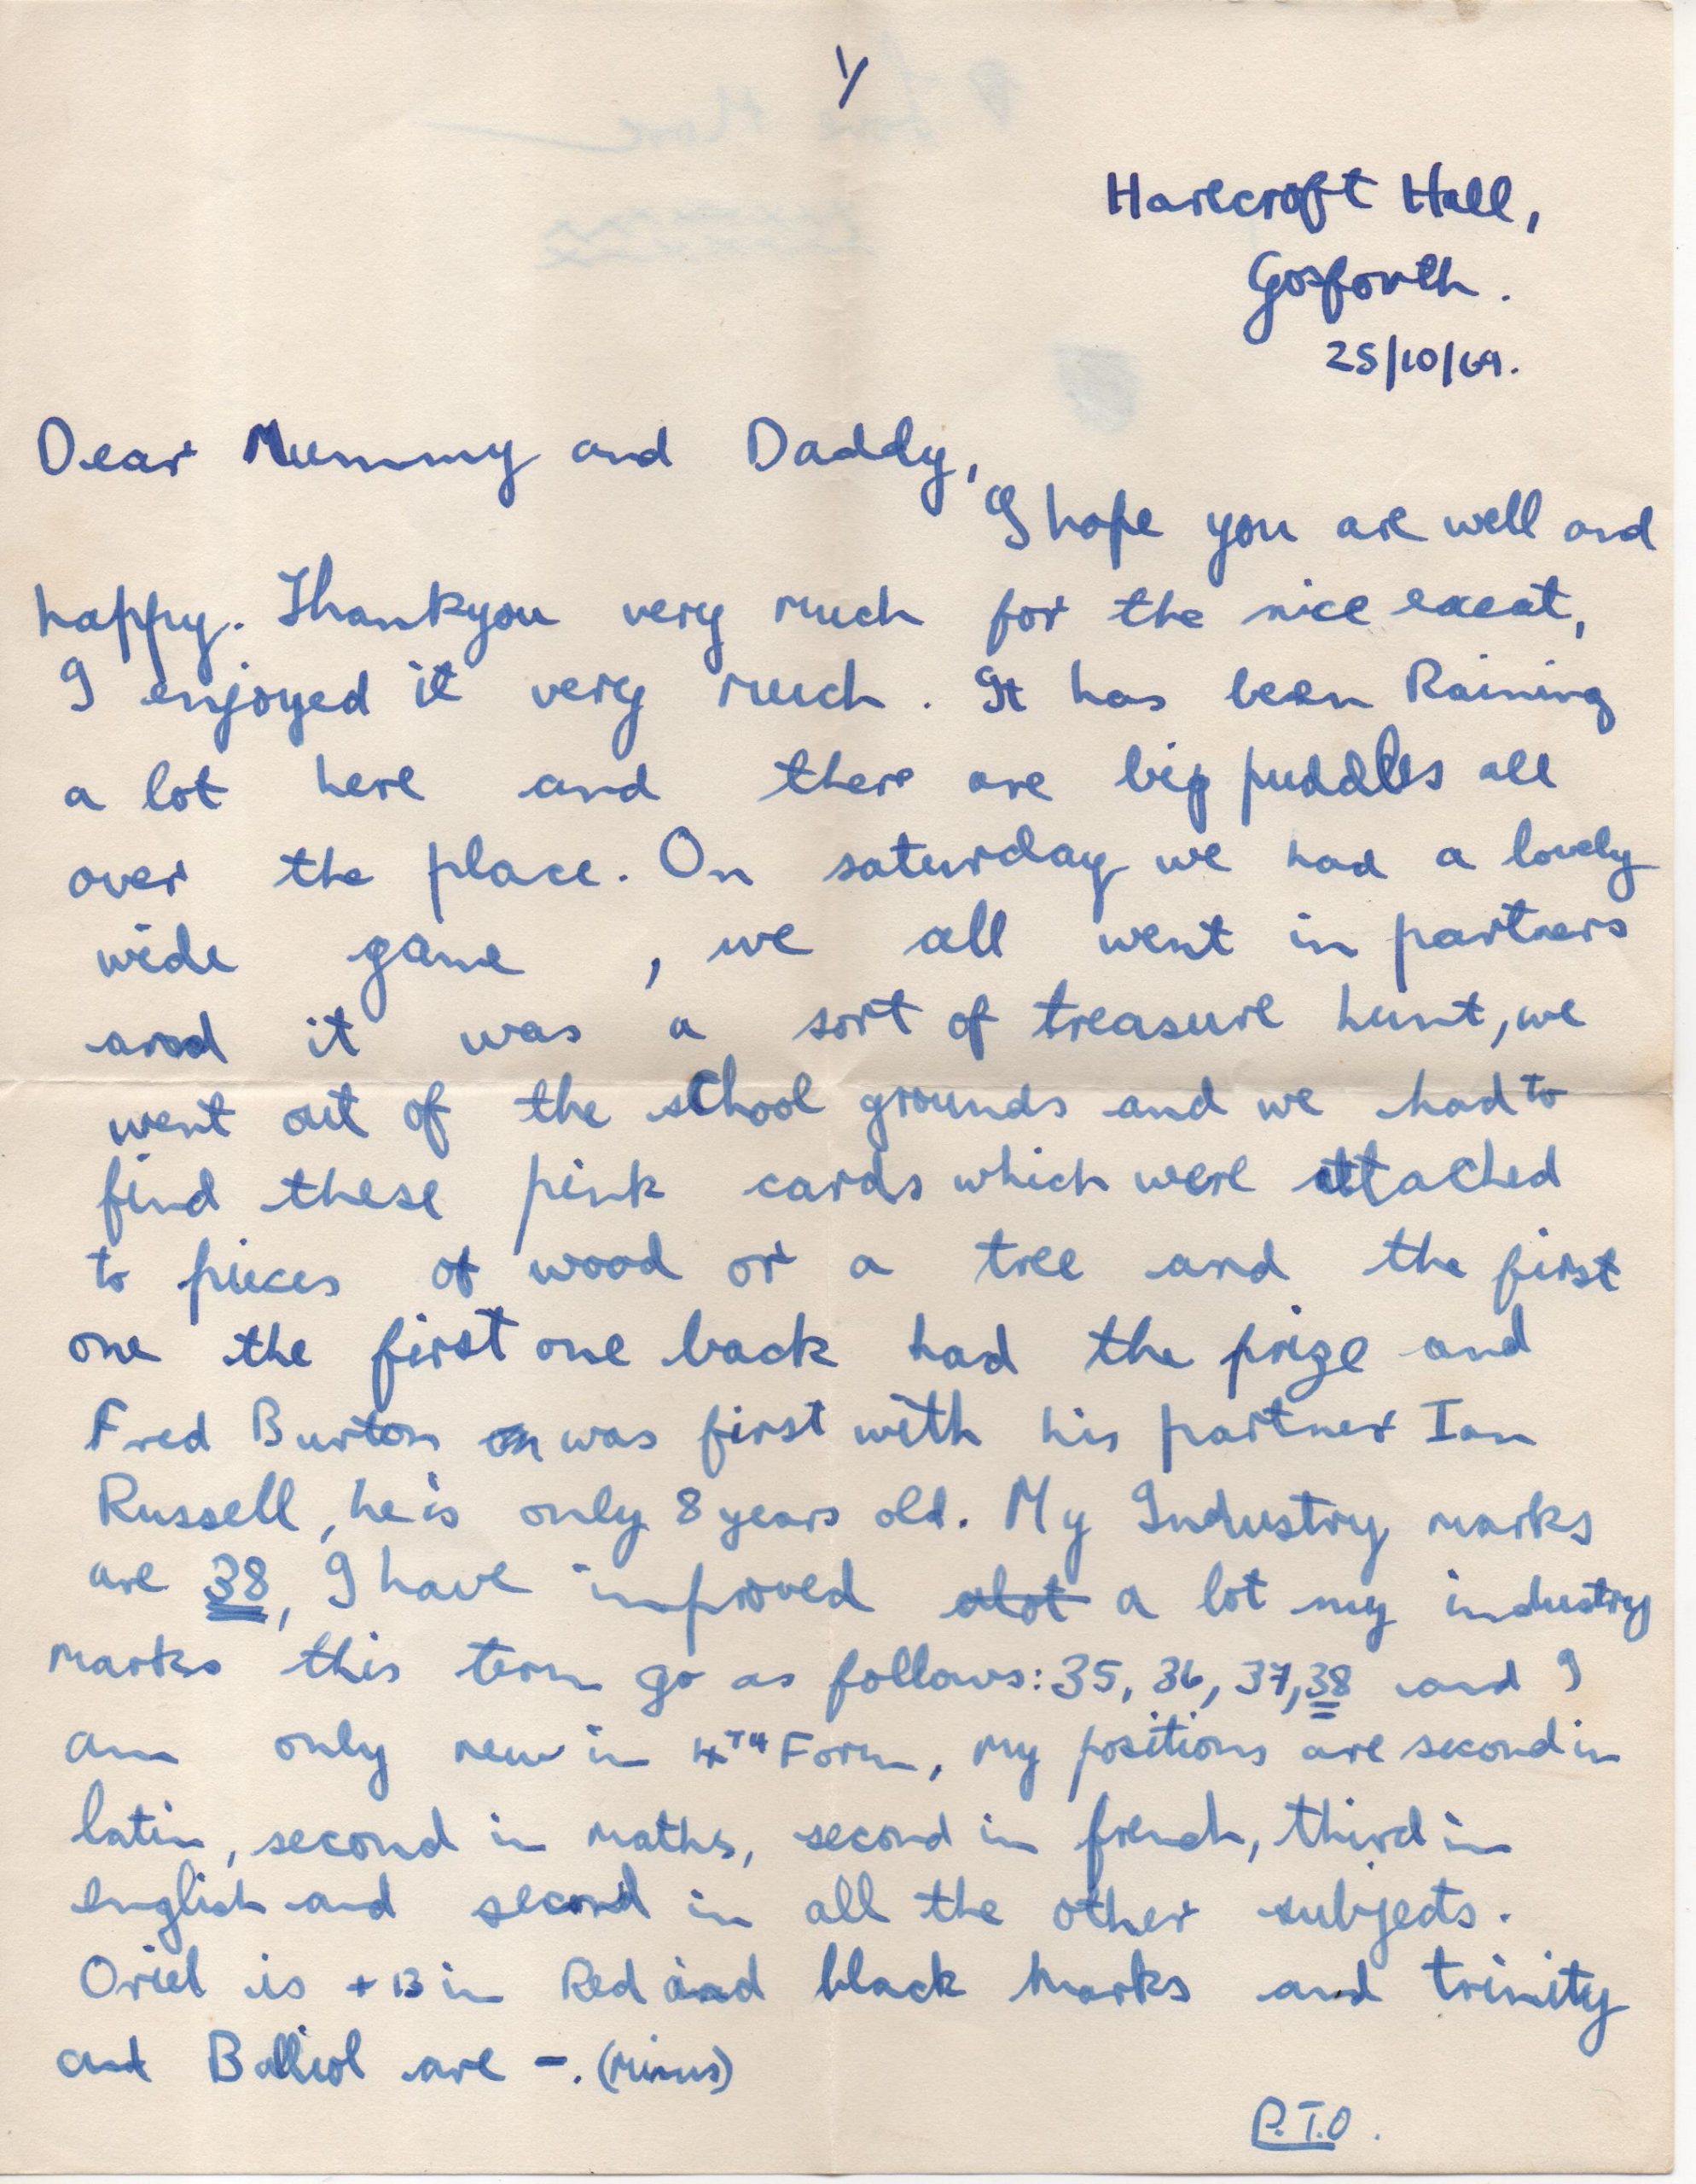 1/
Harecroft Hall,
Gosforth.
25/10/69.
Dear Mummy and Daddy,
I hope you are well and
happy. Thankyou very much for the nice exeat,
I enjoyed it very much. It has been Raining
a lot here and there are big puddles all
over the place. On saturday we had a lovely
wide game, we all went in partners
and it was a sort of treasure hunt, we
went out of the school grounds and we had to
find these pink cards which were attached
to pieces of wood or a tree and the first
one the first one back had the prize and
Fred Burton was first with his partner Ian
Russell, he is only 8 years old. My Industry marks
are 38, I have improved alot a lot my industry
marks this term go as follows: 35, 36, 37, 38 and I
am only new in 4TH Form, my positions are second in
latin, second in maths, second in french, third in
english and second in all the other subjects.
Oriel is +13 in Red and black marks and trinity
and Balliol are -. (Minus)
P.T.O.